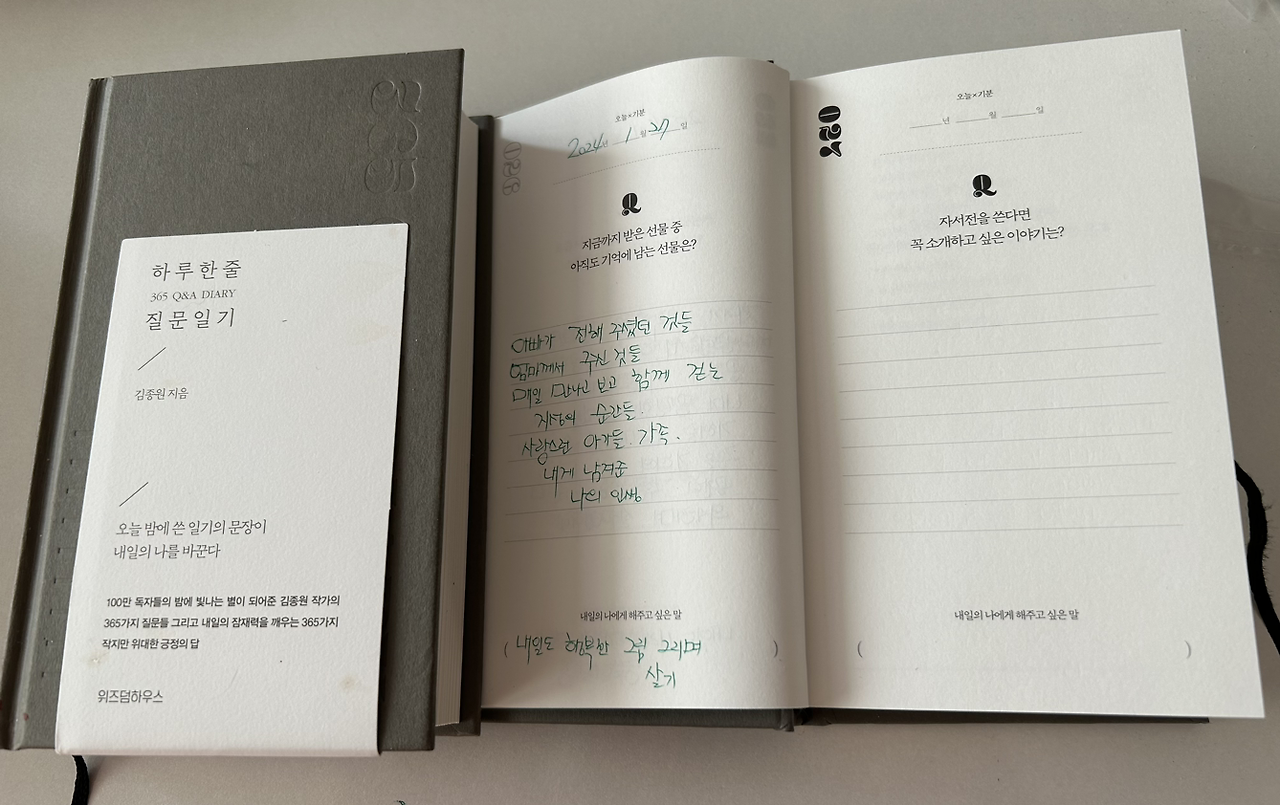 365
하루 한 줄
365 Q&A DIARY
질문일기
김종원 지음
오늘 밤에 쓴 일기의 문장이
내일의 나를 바꾼다
100만 독자들의 밤에 빛나는 별이 되어준 김종원 작가의
365가지 질문들 그리고 내일의 잠재력을 깨우는 365가지
작지만 위대한 긍정의 답
위즈덤하우스
026
오늘×기분
2024년 1월 27일
Q
지금까지 받은 선물 중
아직도 기억에 남는 선물은?
아빠가 전해 주셨던 것들
엄마께서 주신 것들
매일 만나고 보고 함께 걷는
지성의 순간들.
사랑스런 아가들. 가족.
내게 남겨준
나의 인생
내일의 나에게 해주고 싶은 말
( 내일도 행복한 그림 그리며 )
살기
027
오늘×기분
년 월 일
Q
자서전을 쓴다면
꼭 소개하고 싶은 이야기는?
내일의 나에게 해주고 싶은 말
( )